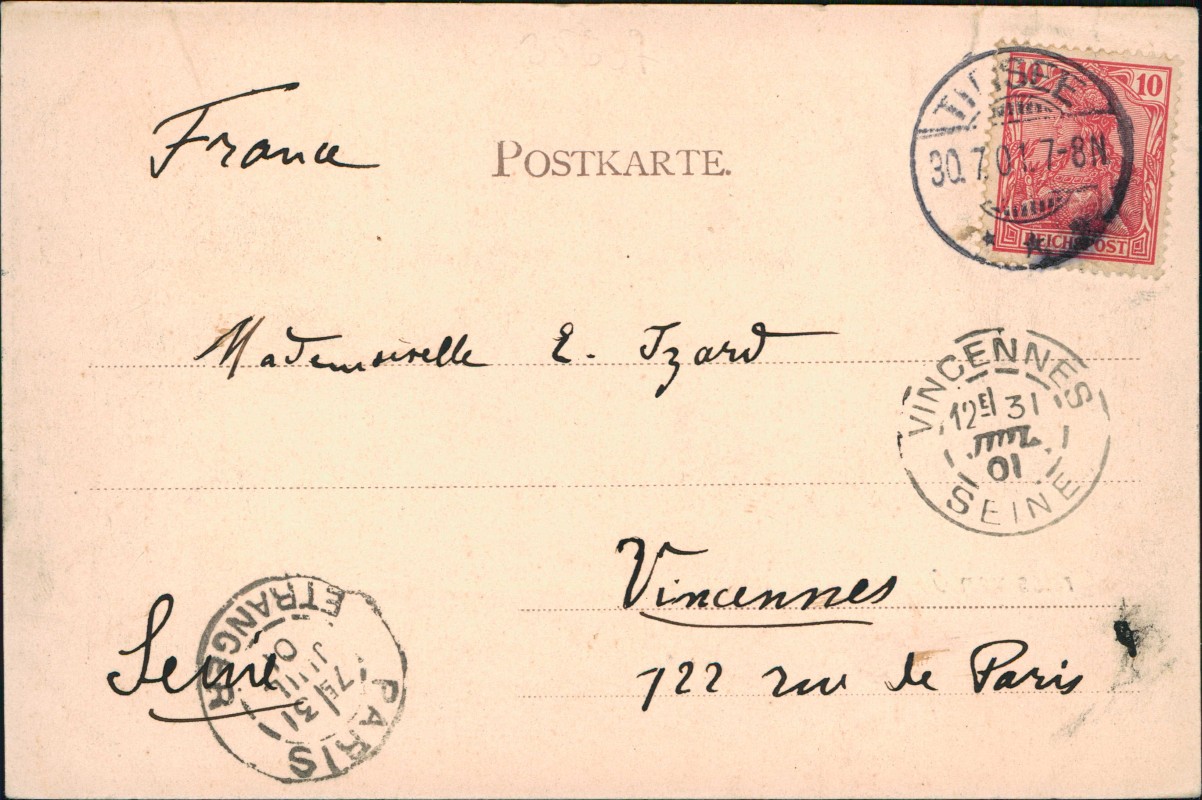 France
POSTKARTE.
10
TITISEE
30.7.01.7-8N
REICHSPOST
Mademoiselle E. Izard
VINCENNES
12E 31
01
SEINE
Vincennes
Seine
122 rue de Paris
PARIS
7E 31
JUIL
01
ETRANGER